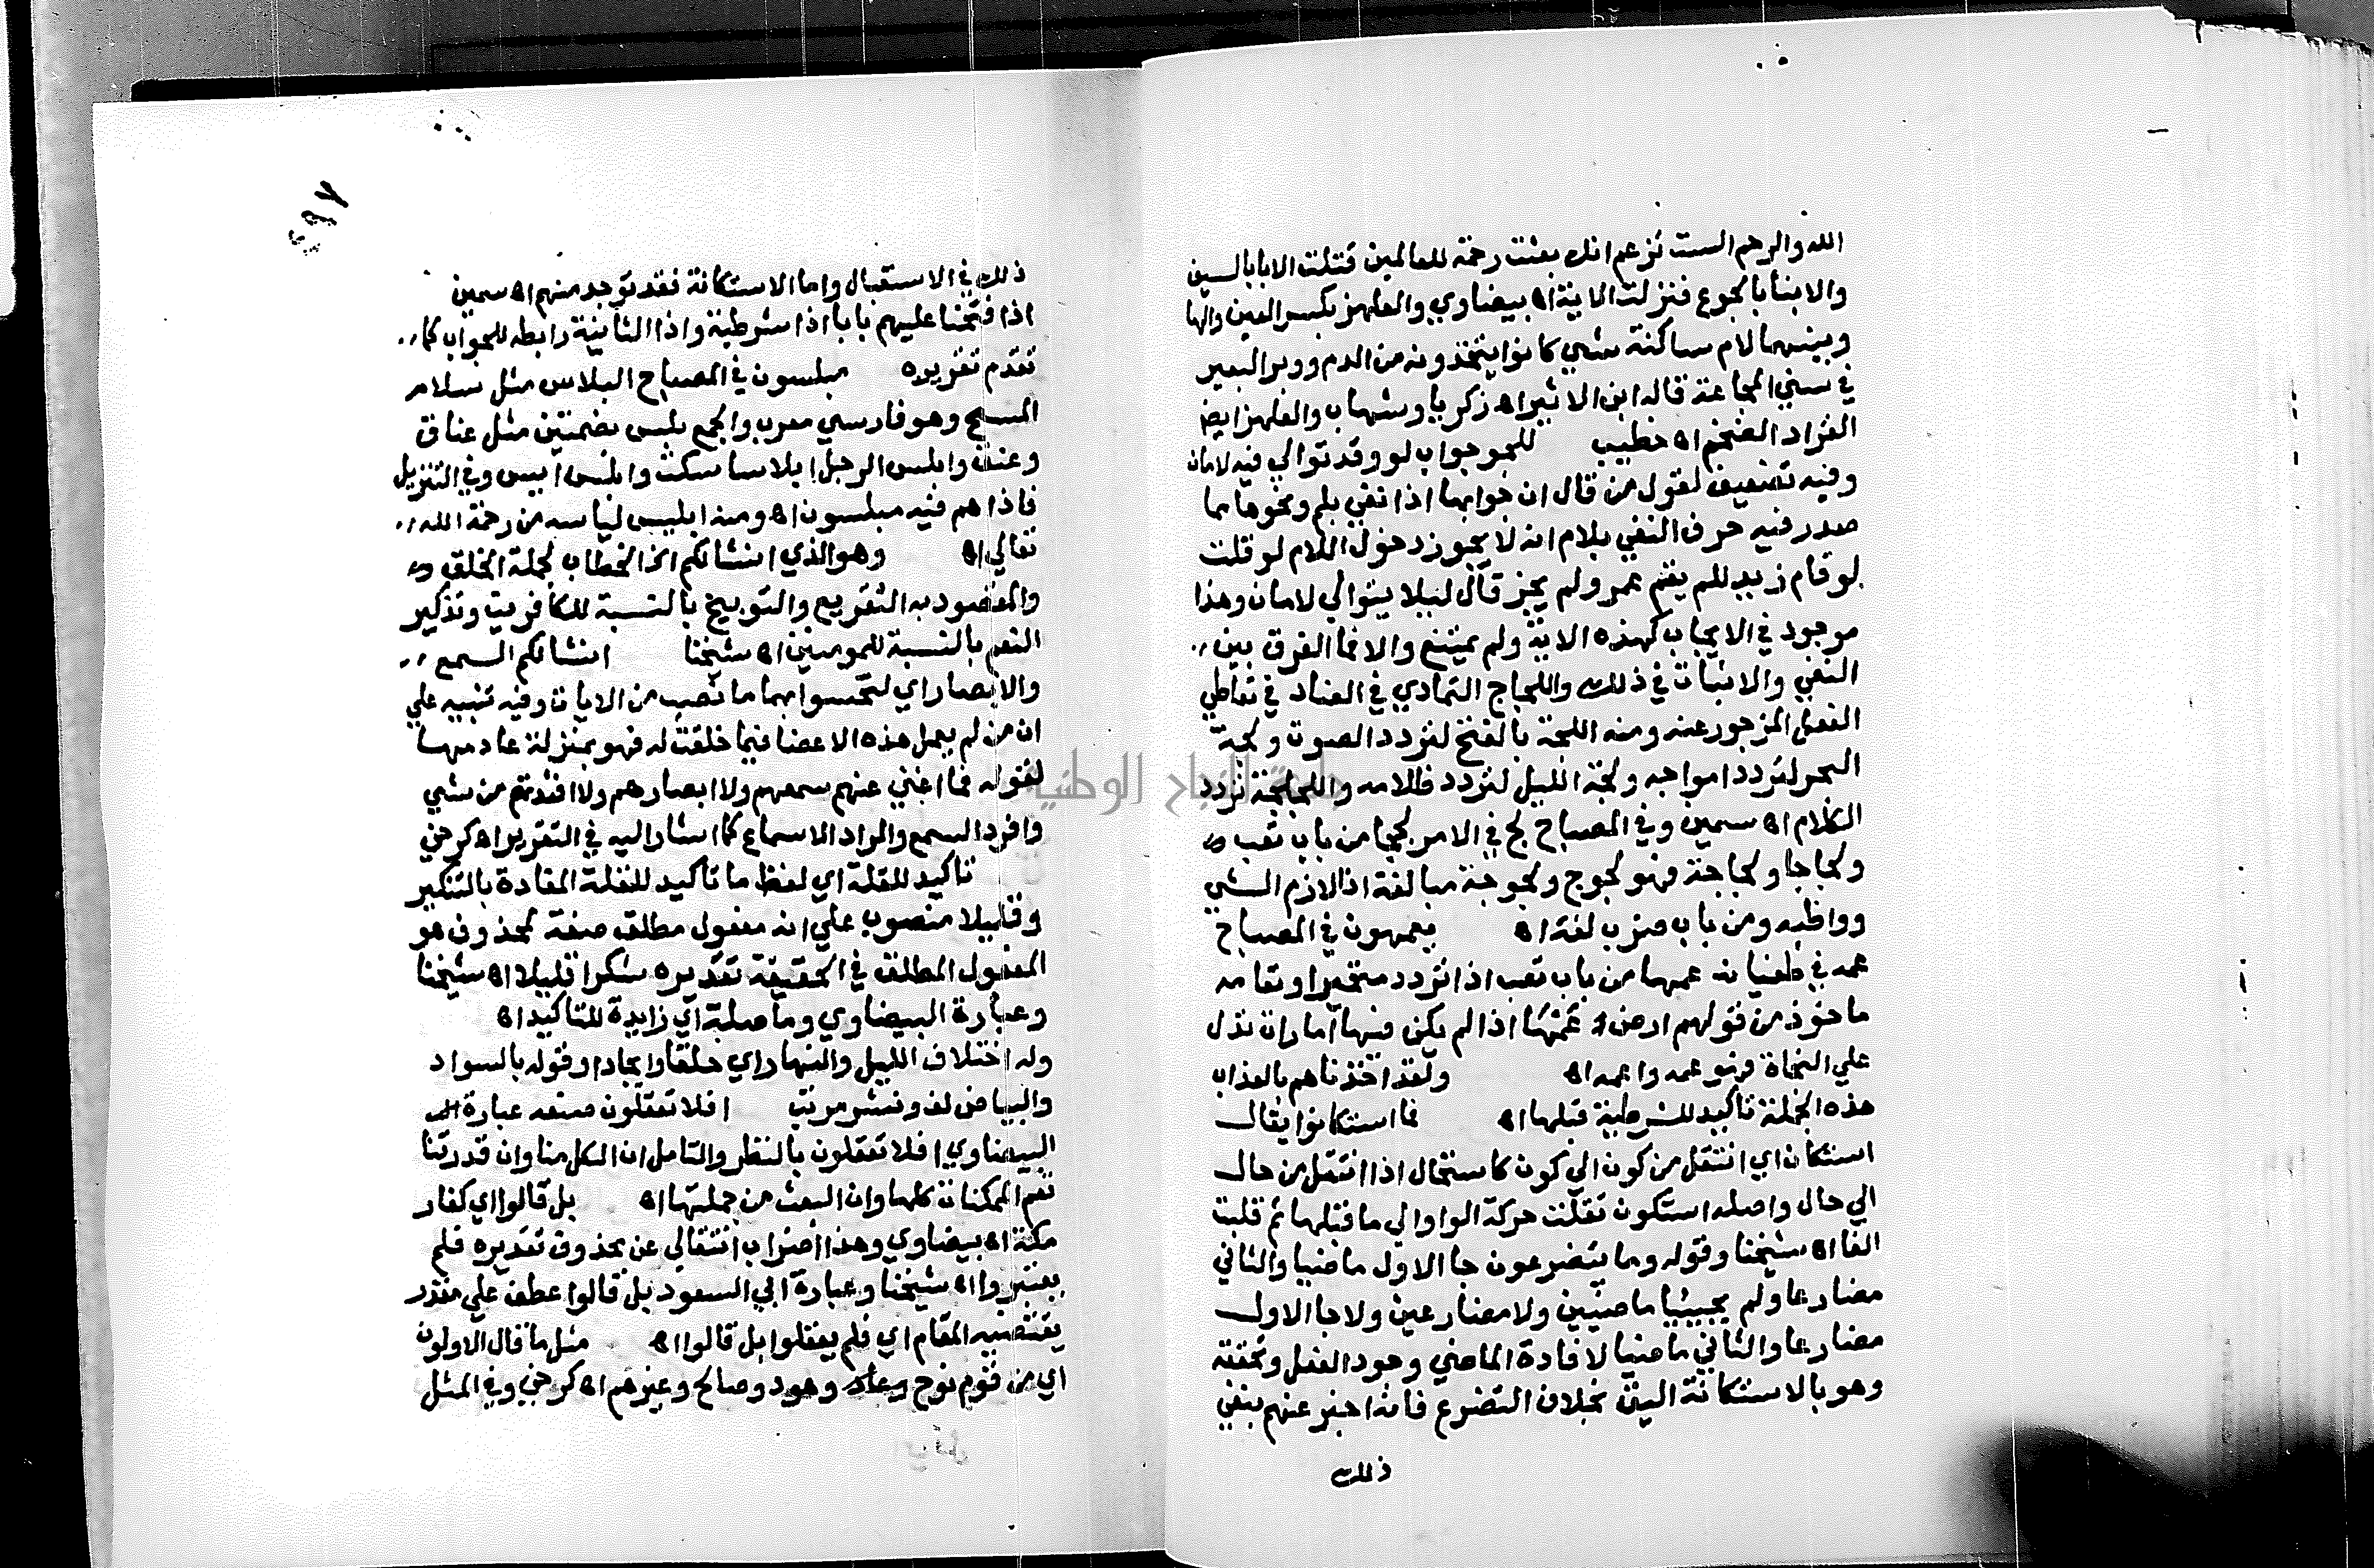 الله والرحم الست تزعم انك بعثت رحمة للعالمين قتلت الابا بالسيف
والابنا بالجوع فنزلت الاية اه بيضاوي والعلهز بكسر العين والها
وبينهما لام ساكنة شي كانوا يتخذونه من الدم ووبر البعير
في سني المجاعة قاله ابن الاثير اه زكريا وشهاب والعلهز ايضا
القراد الضخم اه خطيب للجو جواب لو وقد توالي فيه لامان
وفيه تضعيف لقول من قال ان جوابها اذا نفي بلم ونحوها مما
صدر فيه حرف النفي بلام انه لا يجوز دخول اللام لو قلت
لو قام زيد للم يقم عمرو لم يجز قال ليلا يتوالي لامان وهذا
موجود في الايجاب كهذه الاية ولم يمتنع والا فما الفرق بين
النفي والاثبات في ذلك واللجاج التمادي في العناد في تعاطي
الفعل المزجور عنه ومنه اللجة بالفتح لتردد الصوت ولجة
البحر لتردد امواجه ولجة الليل لتردد ظلامه واللجلجة تردد
الكلام اه سمين وفي المصباح لج في الامر لججا من باب تعب
ولجاجا ولجاجة فهو لجوج ولجوجة مبالغة اذا لازم الشي
وواظبه ومن باب ضرب لغة اه يعمهون في المصباح
عمه في طغيانه عمها من باب تعب اذا تردد متحيرا وتعامه
ماخوذ من قولهم ارض عمها اذا لم يكن فيها امارات تدل
علي النجاة فهو عمه واعمه اه ولقد اخذناهم بالعذاب
هذه الجملة تاكيد للشرطية قبلها اه فما استكانوا يقال
استكان اي انتقل من كون الي كون كاستحال اذا انتقل من حال
الي حال واصله استكون نقلت حركة الواو الي ما قبلها ثم قلبت
الفا اه شيخنا وقوله وما يتضرعون جا الاول ماضيا والثاني
مضارعا ولم يجيئيا ماضيين ولا مضارعين ولا جا الاول
مضارعا والثاني ماضيا لافادة الماضي وجود الفعل وتحققه
وهو بالاستكانة اليق بخلاف التضرع فانه اخبر عنهم بنفي
ذلك
٢٩٧
ذلك في الاستقبال واما الاستكانة فقد توجد منهم اه سمين
اذا فتحنا عليهم بابا اذا شرطية واذا الثانية رابطه للجواب كما
تقدم تقريره مبلسون في المصباح البلاس مثل سلام
المسح وهو فارسي معرب والجمع بلس بضمتين مثل عناق
وعنق وابلس الرجل ابلاسا سكت وابلس ايس وفي التنزيل
فاذا هم فيه مبلسون اه ومنه ابليس لياسه من رحمة الله
تعالي اه وهو الذي انشالكم الخ الخطاب لجملة الخلق
والمقصود به التقريع والتوبيخ بالنسبة للكافرين وتذكير
النعم بالنسبة للمومنين اه شيخنا انشالكم السمع
والابصار اي لتحسوا بهما ما نصب من الايات وفيه تنبيه علي
ان من لم يعمل هذه الاعضا فيما خلقت له فهو بمنزلة عادمها
لقوله فما اغني عنهم سمعهم ولا ابصارهم ولا افئدتهم من شي
وافرد السمع والمراد الاسماع كما اشار اليه في التقرير اه كرخي
تاكيد للقلة اي لفظ ما تاكيد للقلة المفادة بالتنكير
وقليلا منصوب علي انه مفعول مطلق صفة لمحذوف هو
المفعول المطلق في الحقيقة تقديره شكرا قليلا اه شيخنا
وعبارة البيضاوي وما صلة اي زايدة للتاكيد اه
وله اختلاف الليل والنهار اي خلقا وايجادا وقوله بالسواد
والبياض لف ونشر مرتب افلا تعقلون صنعه عبارة
البيضاوي افلا تعقلون بالنظر والتامل ان الكل منا وان قدرتنا
تعم الممكنات كلها وان البعث من جملتها اه بل قالوا اي كفار
مكة اه بيضاوي وهذا اضراب انتقالي عن محذوف تقديره فلم
يعتبروا اه شيخنا وعبارة ابي السعود بل قالوا عطف علي مقدر
يقتضيه المقام اي فلم يعقلوا بل قالوا اه مثل ما قال الاولون
اي من قوم نوح وعاد وهود وصالح وغيرهم اه كرخي وفي المثل
جامعة النجاح الوطنية